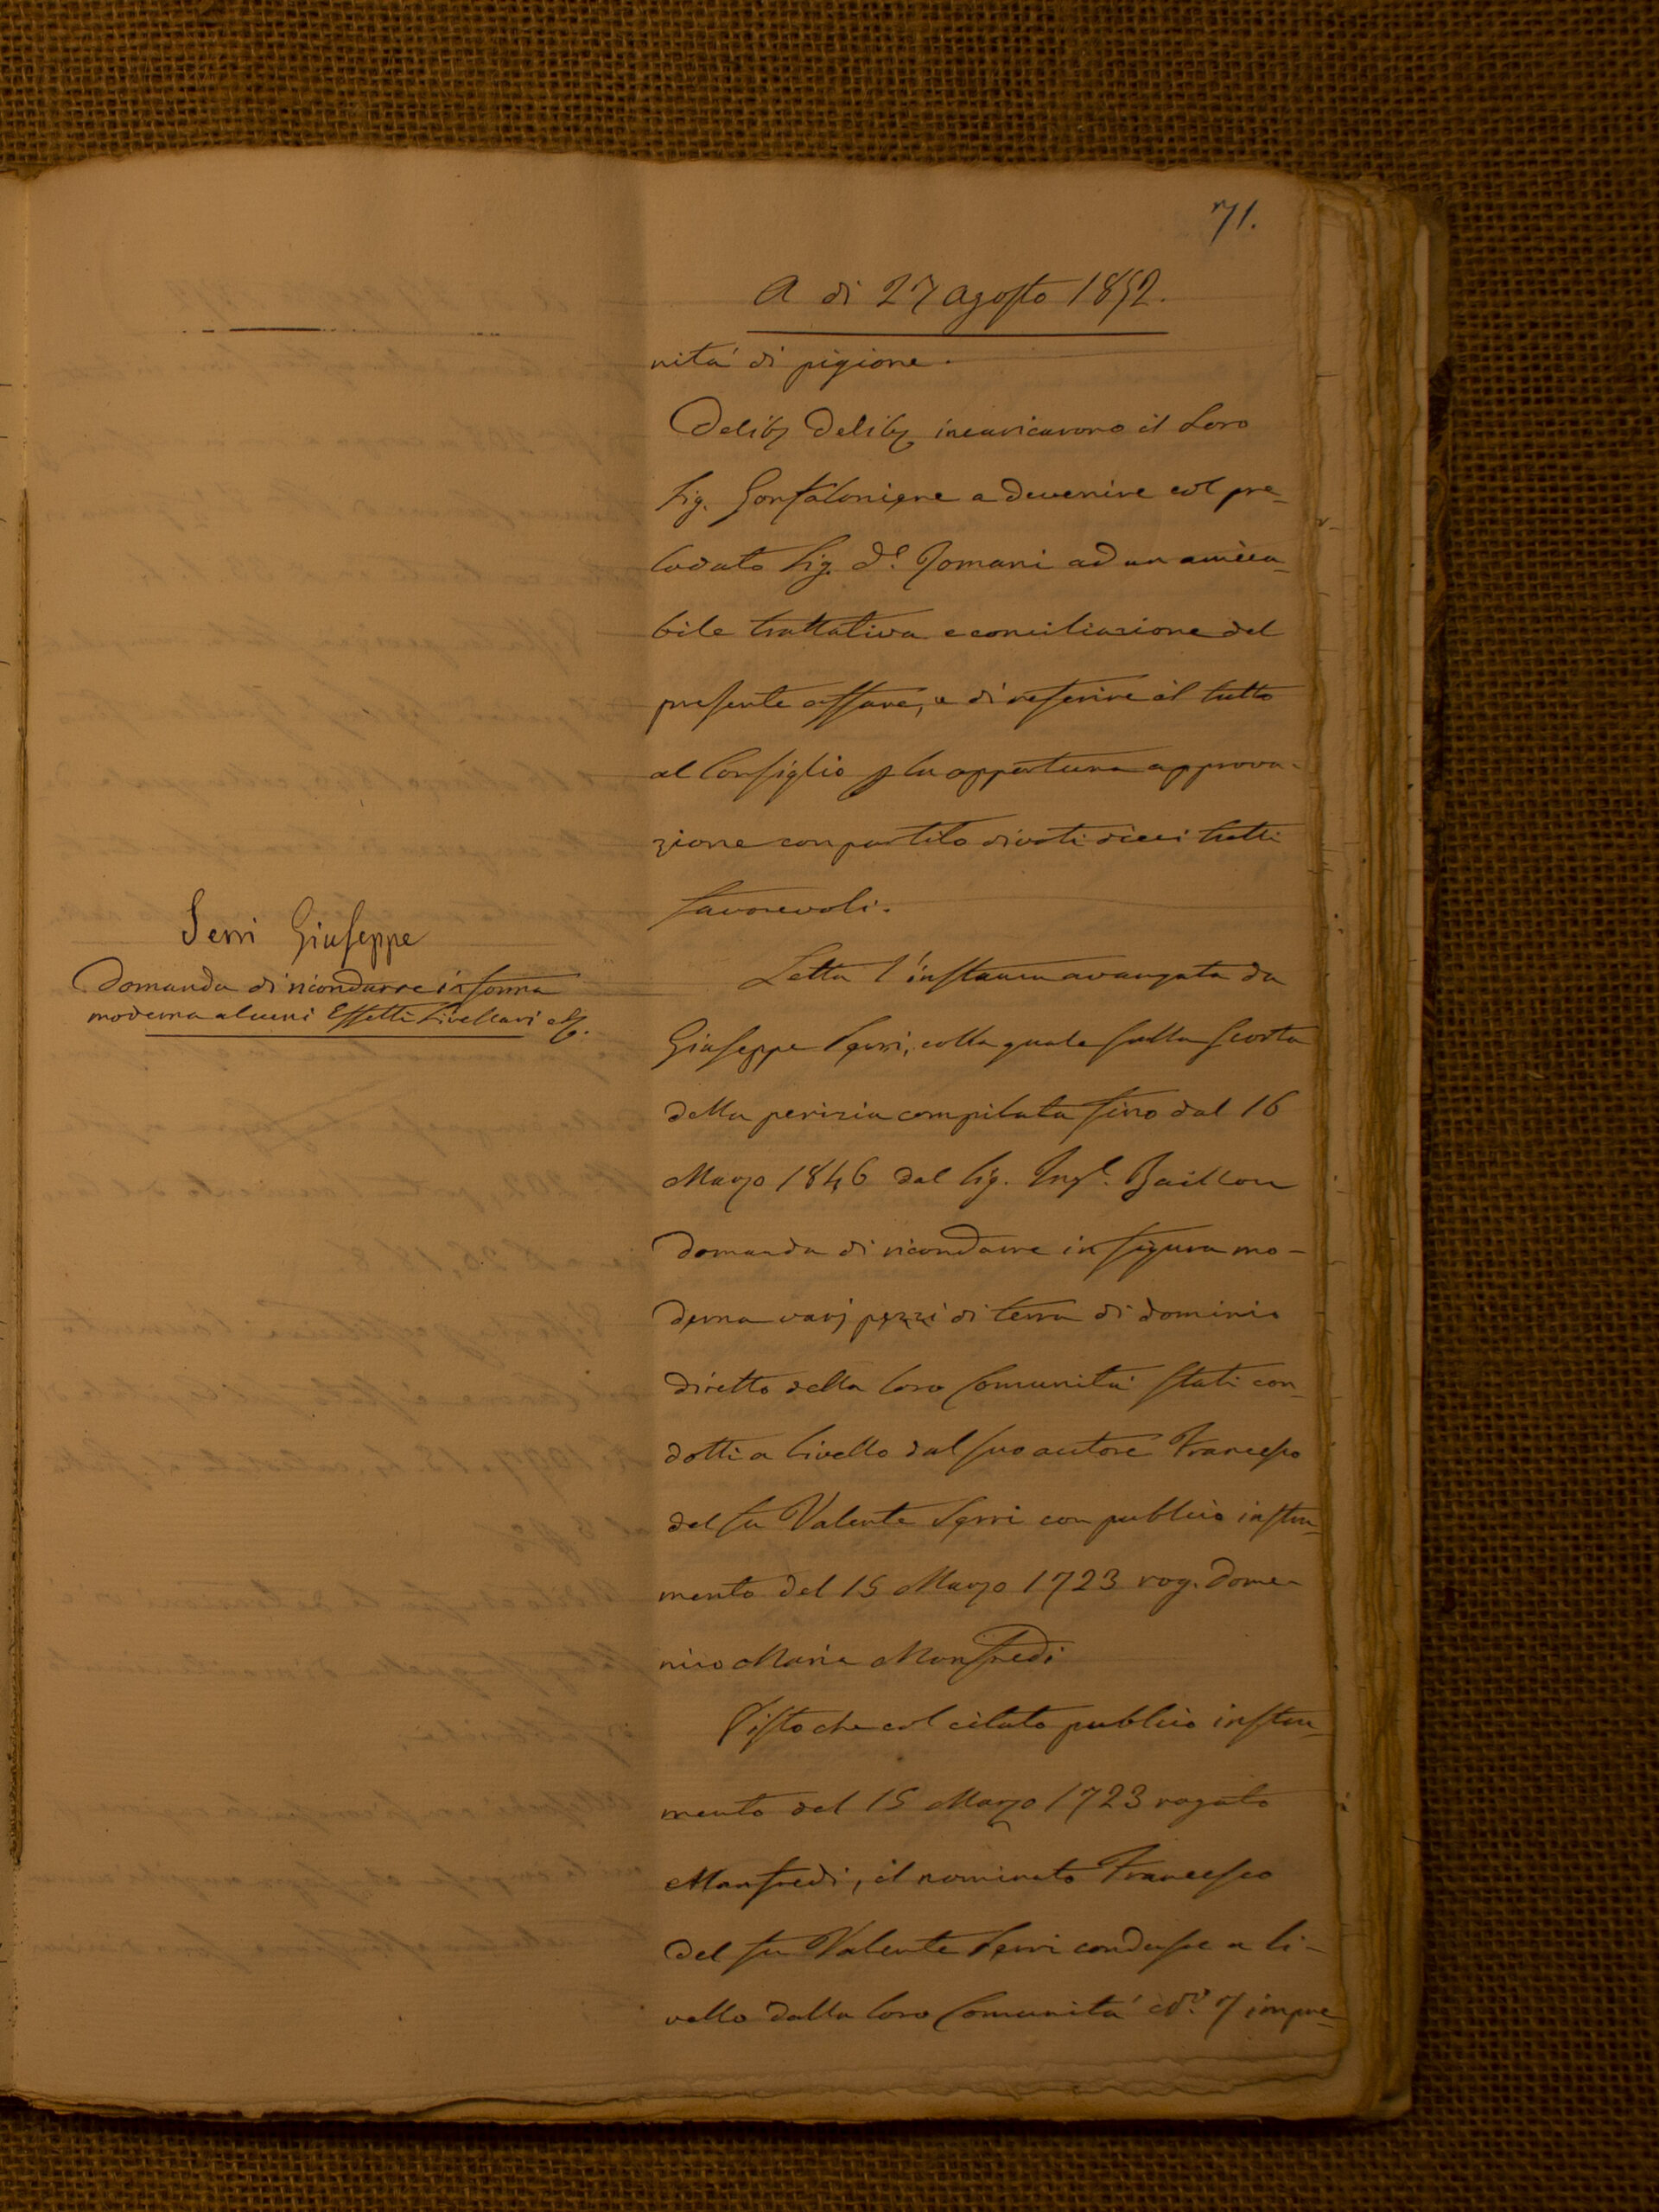 71.
A di 27 Agosto 1852.
nitá di pigione.
Delib. Delib. incaricarono il Loro
Sig. Gonfaloniere a devenire col pre=
lodato Sig. Dr. Romani ad un amica=
bile trattativa e conciliazione del
presente affare, e di referire il tutto
al Consiglio p la opportuna approva=
zione con partito di voti dieci tutti
favorevoli.
Serri Giuseppe
Domanda di ricondurre in forma
moderna alcuni Effetti Livellari
Letta l'instanza avanzata da
Giuseppe Serri, colla quale sulla scorta
della perizia compilata sino dal 16
Marzo 1846 dal Sig. Ing.e Baillou
domanda di ricondurre in figura mo=
derna varj pezzi di terra di dominio
diretto della loro Comunitá stati con=
dotti a livello dal suo autore Francesco
del fu Valente Serri con publico instru=
mento del 15 Marzo 1723 rog. Dome=
nico Maria Manfredi
Visto che col citato publico instru=
mento del 15 Marzo 1723 rogato
Manfredi, il nominato Francesco
del fu Valente Serri condusse a li=
vello dalla loro Comunitá N.o 7 impre=